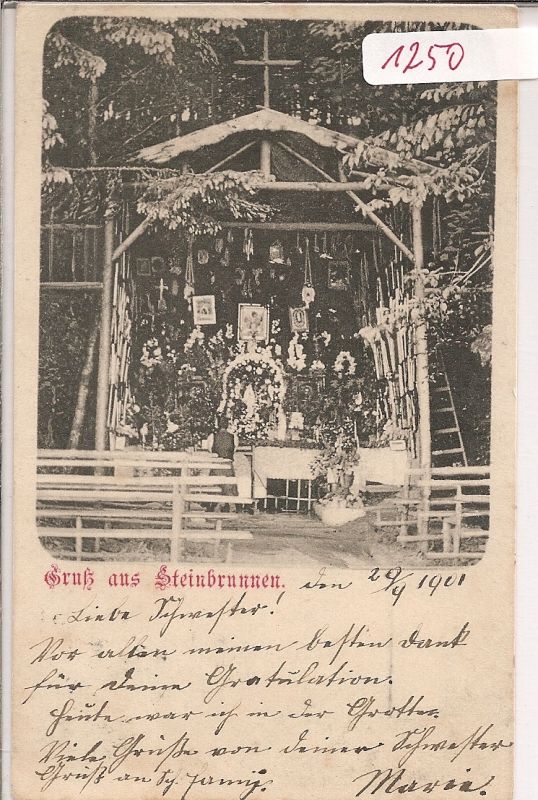 1250
Gruß aus Steinbrunnen. den 29/9 1901
Liebe Schwester!
Vor allen meinen besten Dank
für deine Gratulation.
Heute war ich in der Grotte.
Viele Grüße von deiner Schwester
Gruß an Sch. Marie.